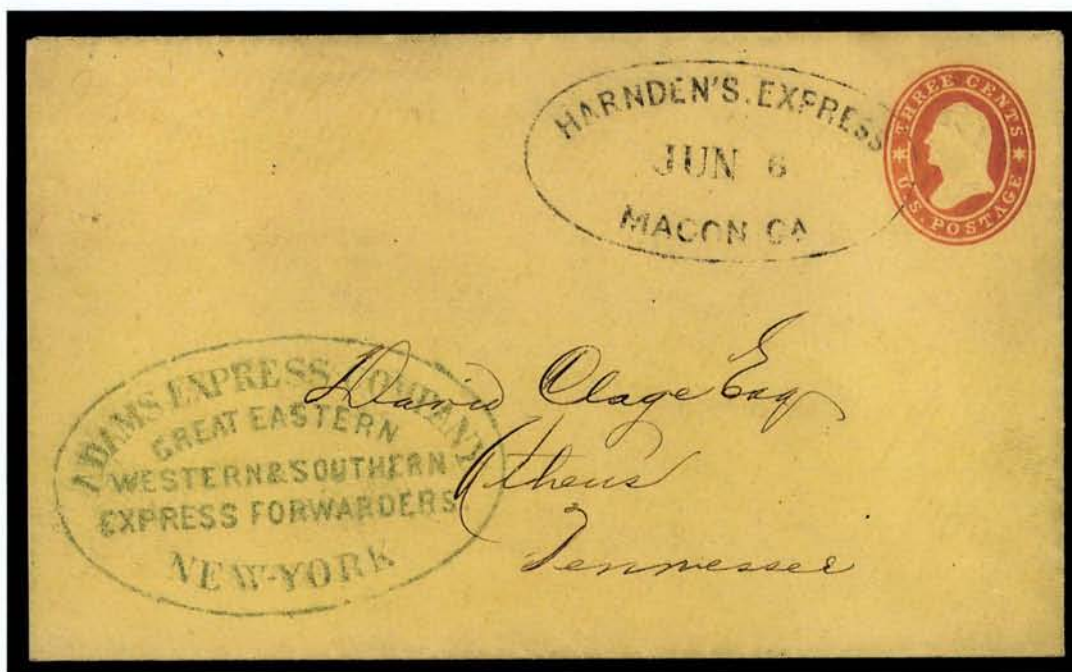 HARNDEN'S. EXPRESS
JUN 6
MACON GA
* THREE CENTS *
U.S. POSTAGE
ADAMS EXPRESS COMPANY
GREAT EASTERN
WESTERN & SOUTHERN
EXPRESS FORWARDERS.
NEW-YORK
David Clage Esq
Athens
Tennessee